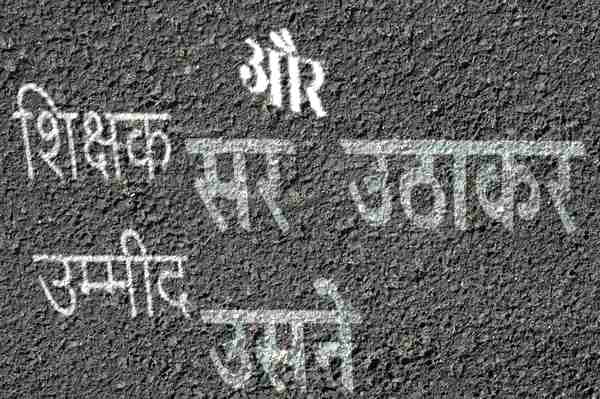 और
शिक्षक सर उठाकर
उम्मीद
उसने